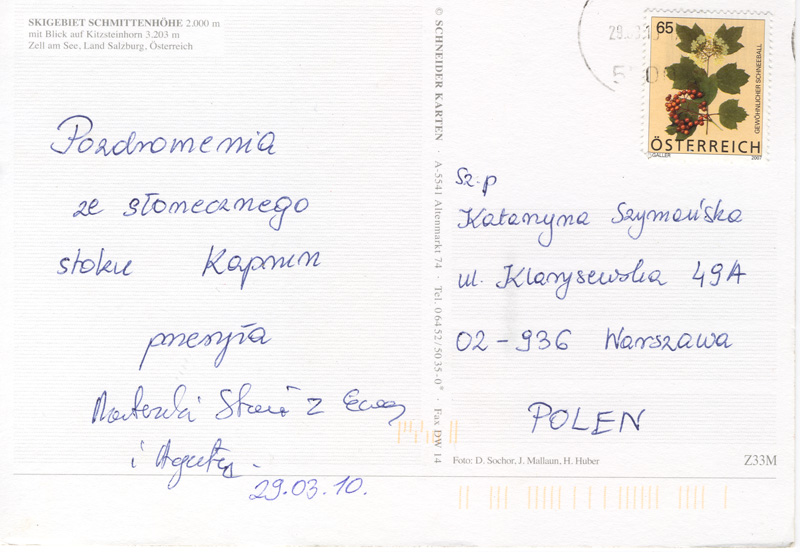 SKIGEBIET SCHMITTENHÖHE 2.000 m
mit Blick auf Kitzsteinhorn 3.203 m
Zell am See, Land Salzburg, Österreich
Pozdrowienia
ze słonecznego
stoku Kaprun
przesyła
Staś z Ewą
i Agatą.
29.03.10.
© SCHNEIDER KARTEN · A-5541 Altenmarkt 74 · Tel. 06452/5035-0* · Fax DW 14
65
GEWÖHNLICHER SCHNEEBALL
ÖSTERREICH
2007
Sz.p
Katarzyna Szymańska
ul. Klarysewska 49A
02-936 Warszawa
POLEN
Foto: D. Sochor, J. Mallaun, H. Huber
Z33M